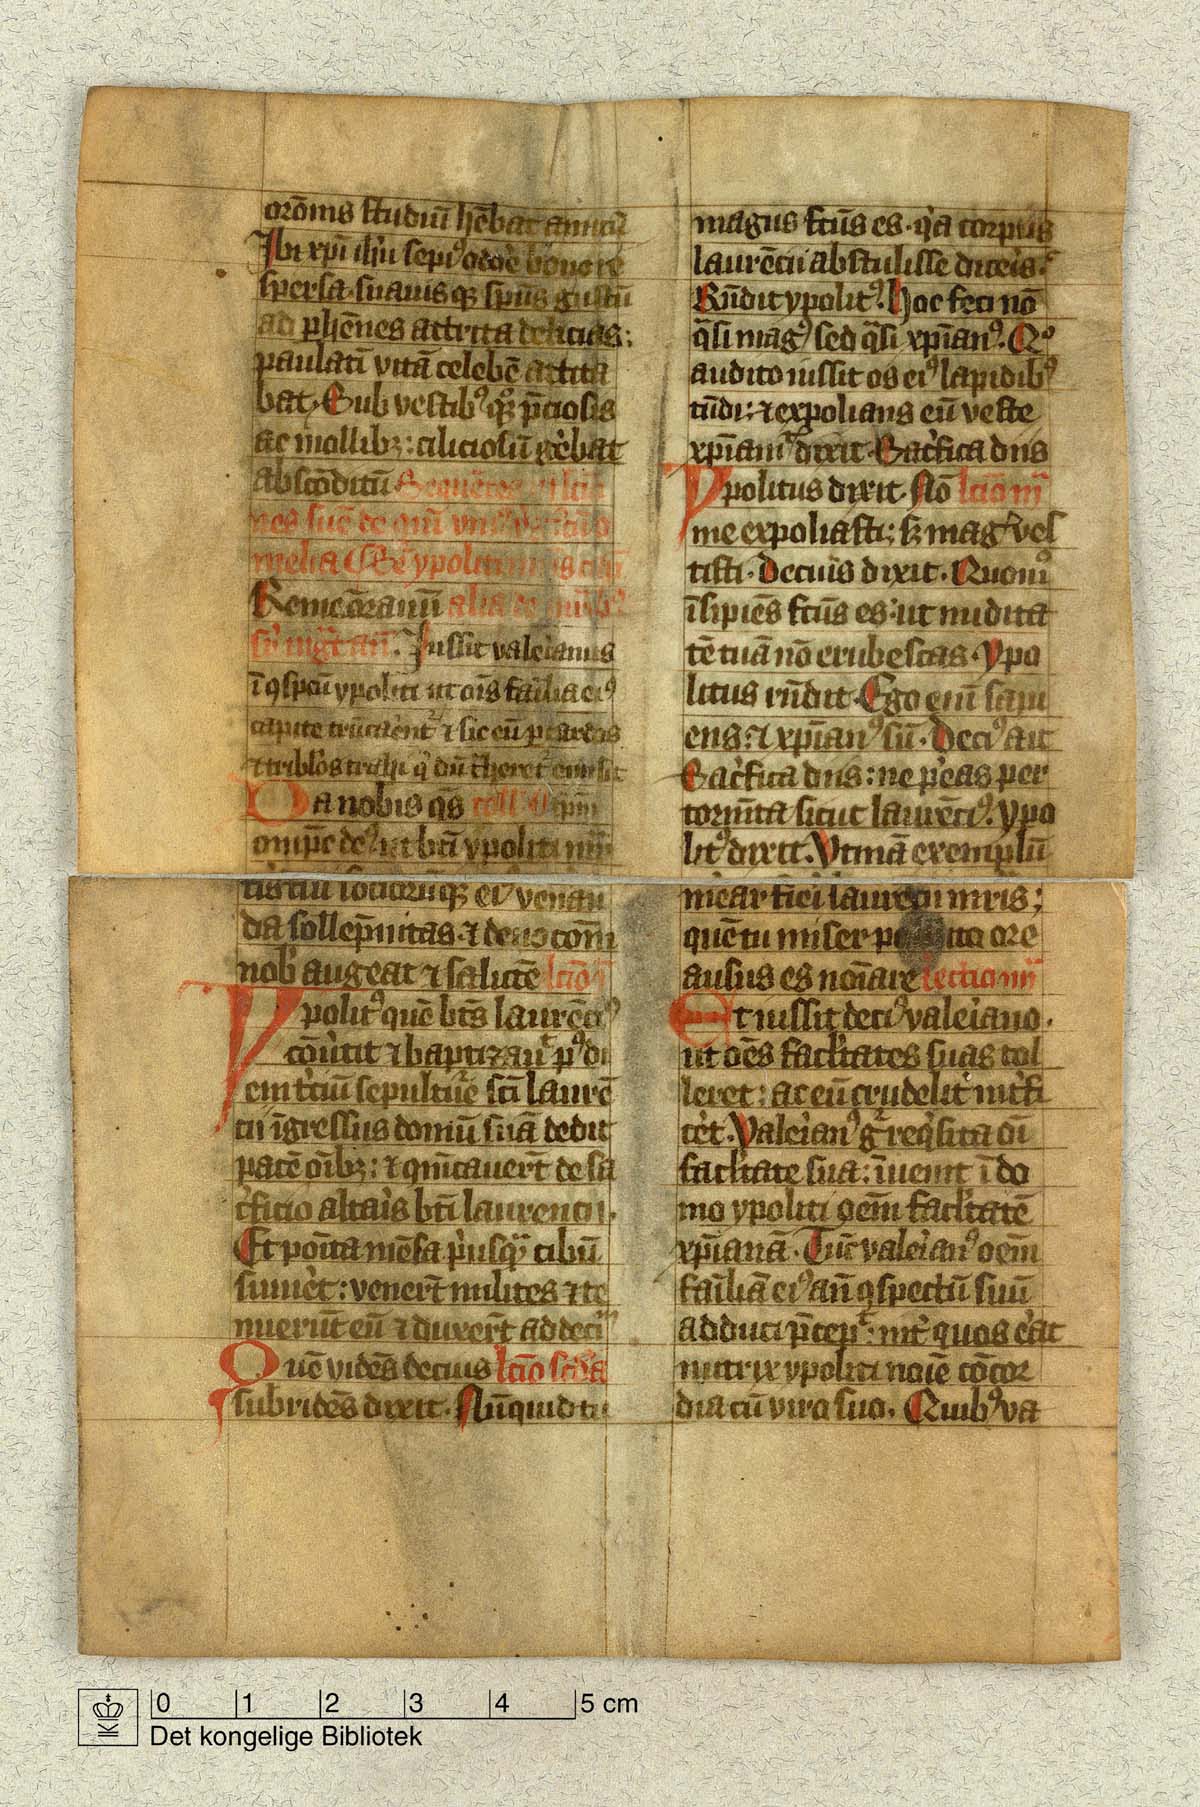 orōnis studiū hēbat amicū
Ibi xp̄i ih̄u sepiꝰ odoꝛe bono re
spersa. suauis qꝫ sp̄us gustū
ad phēnes attrita delicias:
paulati vitā celebē attita
bat. Sub vestibꝰ qͦꝫ p̄ciosis
ac mollibꝫ: ciliciū gēbat
abscōditū Sequētes
nes
melia ypoliti
Remēoramur alia de
Iussit valeianus
ī ꝯspcū ypoliti ut oīs faīlia eiꝰ
capite trūcarent᷑ ⁊ sic eū p cardos
⁊ tribl̓os trahi
Da nobis qs̄ coll
omp̄c deꝰ ut bt̄i ypoliti mr̄
tis tui sociorūqꝫ eiꝰ venan
da sollēpnitas. ⁊ deuocōm
nob̓ augeat ⁊ salutē lcīo
Ypolitꝰ quē bt̄s laurēciꝰ
cōu̓tit ⁊ baptizauͭ pꝰ di
em t̓ciū sepultur̄e sc̄i laurē
cii īgressus domū suā dedit
pacē oībꝫ: ⁊ cōīcauer̄t de sa
c̓ficio altaīs bt̄i laurencii.
Et poīta mēsa p̓usqͣꝫ cibū
sumēt: vener̄t milites ⁊ te
nuerūt eū ⁊ duxer̄t ad deciū
Quē vidēs decius lcīo sc̄da
subridēs dixit. Nūquid tu
magus fc̄us es. q̓a corpus
laurēcii abstulisse diceis.
Rn̄dit ypolitꝰ. Hoc feci nō
qͣsi magꝰ sed qͣsi xp̄ianꝰ. Qͦ
audito iussit os eiꝰ lapidibꝰ
tūdi: ⁊ expolians eū veste
xp̄iani dixit. Sac̓fica diis
Ypolitus dixit. Nō lcīo iii
me expoliasti: sꝫ magꝭ ves
tisti. Decius dixit. Quomō
īsipiēs fc̄us es. ut nudita
tē tuā nō erubescas. Ypo
litus rn̄dit. Ego em̄ sapi
ens: ⁊ xp̄ianꝰ sū. Deciꝰ ait
Sac̓fica diis: ne p̓eas per
torm̄ta sicut laurēciꝰ. ypo
litꝰ dixit. Vtinā exemplū
mear fieri laurecii mr̄is;
quē tu miser ore
ausus es nōiare lectio iiii
Et iussit deciꝰ valeiano.
ut oēs facl̓tates suas tol
leret: ac eū crudelit̓ int̓fi
cēt. Valeianꝰ gͣ reqͥsita oī
facl̓tate sua: īuenit ī do
mo ypoliti oēm facl̓tatē
xp̄ianā. Tūc valeianꝰ oēm
faīliā eiꝰ an̄ ꝯspectū suū
adduci p̄cepͭ: int̓ quos e̓at
nutrix ypoliti noīe cōcor
dia cū viro suo. Quibꝰ va
0 1 2 3 4 5 cm
Det kongelige Bibliotek